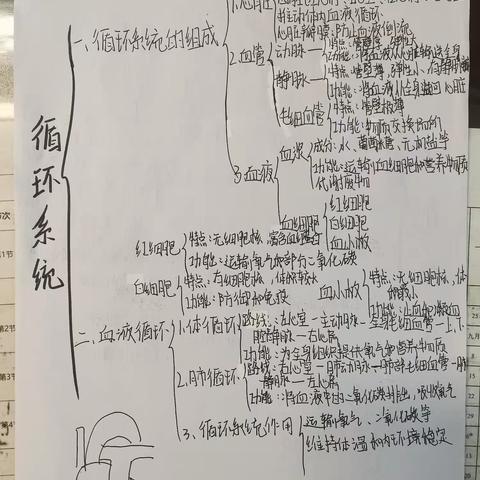 循环系统
一、循环系统的组成
1.心脏
推动体内血液循环
心脏瓣膜:防止血液倒流
2.血管
动脉
功能:将血液从心脏输送全身
静脉
特点:管壁薄,弹性小,有静脉瓣
功能:将血液从全身送回心脏
毛细血管
特点:管壁极薄
功能:物质交换场所
3.血液
血浆
成分:水、葡萄糖、无机盐等
功能:运输血细胞和营养物质
代谢废物
血细胞
红细胞
白细胞
血小板
红细胞
特点:无细胞核,富含血红蛋白
功能:运输氧气和部分二氧化碳
白细胞
特点:有细胞核,体积较大
功能:防御和免疫
血小板
特点:无细胞核,体积最小
功能:止血和凝血
二、血液循环
1.体循环
路线:左心室—主动脉—全身毛细血管—上、下
腔静脉—右心房
功能:为全身组织提供氧气和营养物质
2.肺循环
路线:右心室—肺动脉—肺部毛细血管—肺
静脉—左心房
功能:将血液中的二氧化碳排出,吸收氧气
3、循环系统作用
运输氧气、二氧化碳等
维持体温和内环境稳定
第2节
第3节